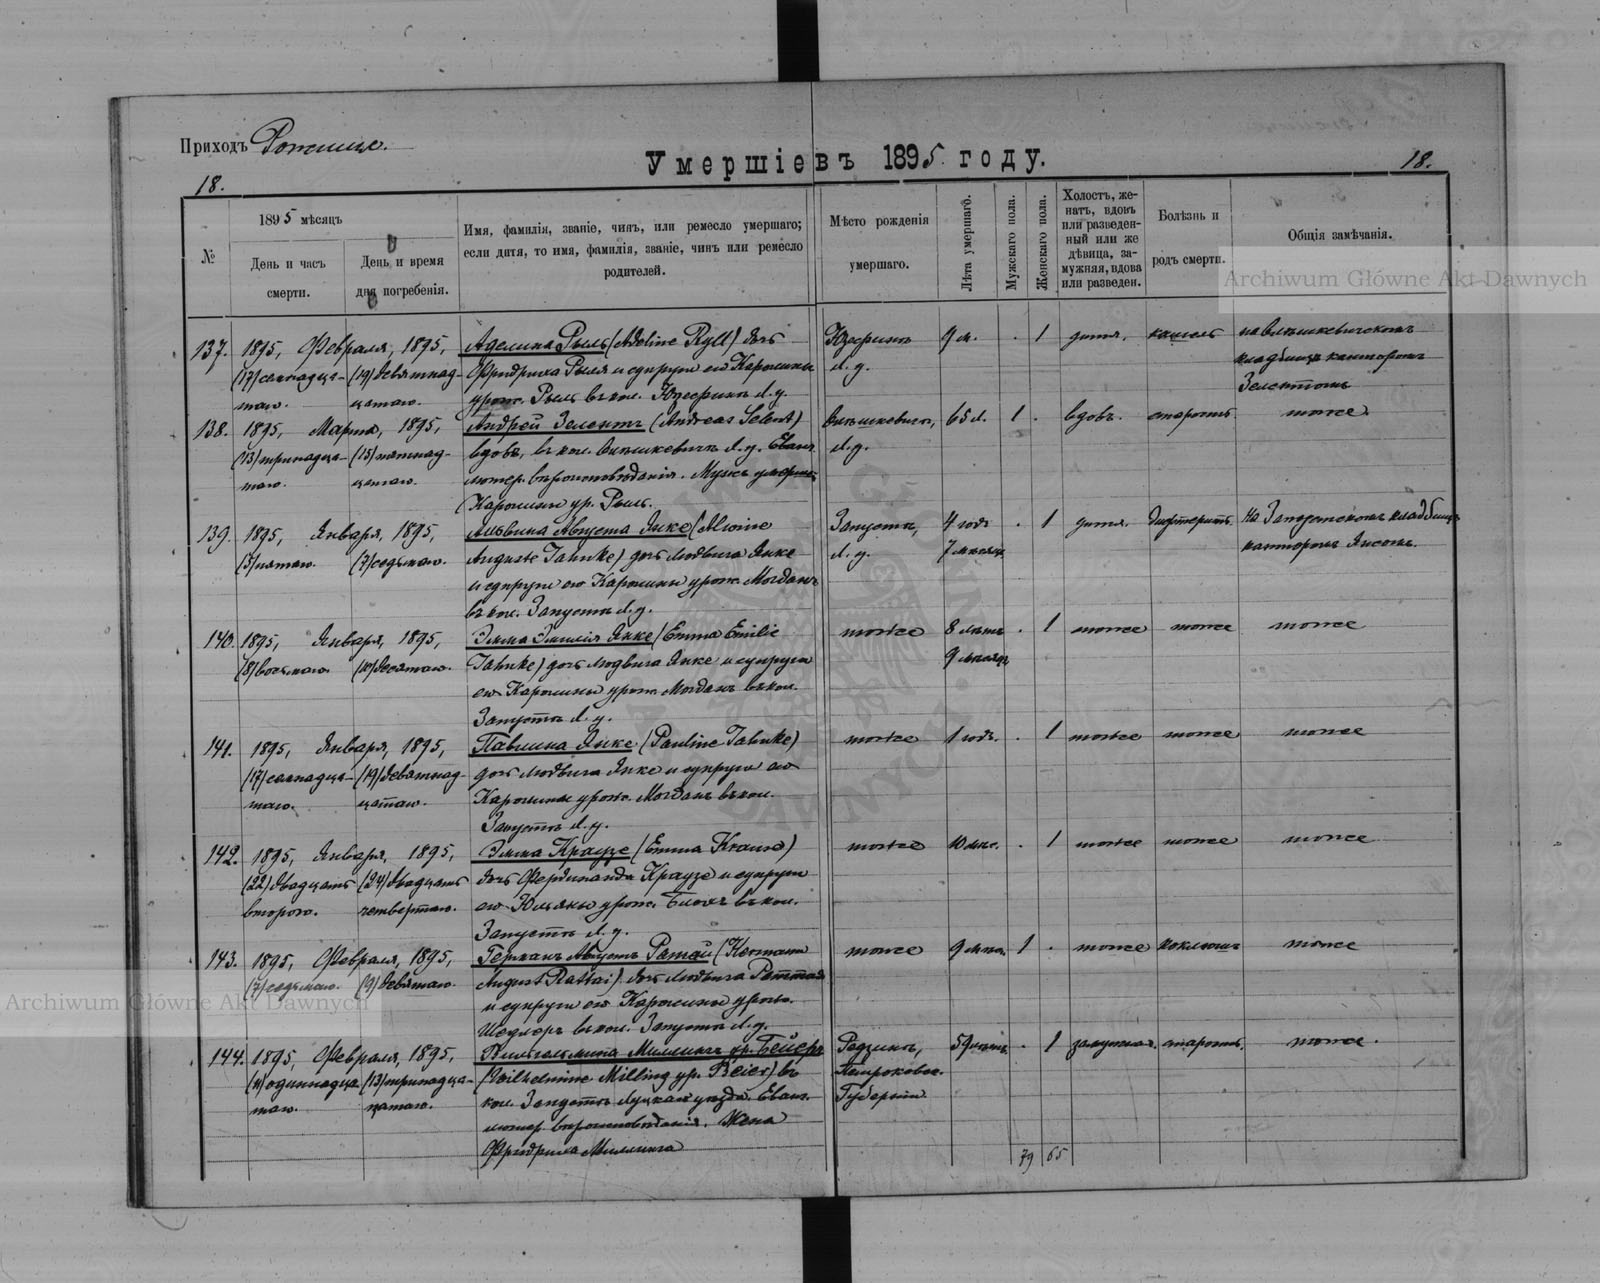 Приходъ Рожище.
Умершіе въ 1895 году.
18.
18.
№
1895 мѣсяцъ
День и часъ смерти.
День и время дня погребенія.
Имя, фамилія, званіе, чинъ, или ремесло умершаго;
если дитя, то имя, фамилія, званіе, чинъ или ремесло
родителей.
Мѣсто рожденія
умершаго.
Лѣта умершаго.
Мужскаго пола.
Женскаго пола.
Холостъ, же-
натъ, вдовъ
или разведен-
ный или же
дѣвица, за-
мужная, вдова
или разведен.
Болѣзнь и
родъ смерти.
Общія замѣчанія.
Archiwum Główne Akt Dawnych
137. 1895, Февраля, 1895, Аделина Рыль (Adeline Ryll) дочь Юзефинъ 9 м. . 1 дитя. кашель
(17) семнадца- (19) девятнад- Фридриха Рыля и супруги его Каролины л.у. кладбищѣ канторомъ
таго. цатаго. урож. Рыль въ кол. Юзефинъ л.у. Зелентомъ
138. 1895, Марта, 1895, Андрей Зелентъ (Andreas Selent) 65 л. 1 . вдовъ. старость. тоже
(13) тринадца- (15) пятнад- вдовъ, въ кол. л.у. Еванг. л.у.
таго. цатаго. лютер. вѣроисповѣданія. Мужъ умершей
Каролины ур. Рыль.
139. 1895, Января, 1895, Альвина Августа Янке (Alwine Запустъ, 4 годъ . 1 дитя. дифтеритъ. на Запустскомъ кладбищѣ
(5) пятаго. (7) седьмаго. Auguste Jahnke) дочь Людвига Янке л.у. 7 мѣсяц. канторомъ
и супруги его Каролины урож. Могданъ
въ кол. Запустъ л.у.
140. 1895, Января, 1895, Эмма Эмилія Янке (Emma Emilie тоже 8 лѣтъ . 1 тоже тоже тоже
(8) восьмаго. (10) десятаго. Jahnke) дочь Людвига Янке и супруги 9 мѣсяц.
его Каролины урож. Могданъ въ кол.
Запустъ л.у.
141. 1895, Января, 1895, Павлина Янке (Pauline Jahnke) тоже 1 годъ. . 1 тоже тоже тоже
(17) семнадца- (19) девятнад- дочь Людвига Янке и супруги его
таго. цатаго. Каролины урож. Могданъ въ кол.
Запустъ л.у.
142. 1895, Января, 1895, Эмма Краузе (Emma Krause) тоже 10 мѣс. . 1 тоже тоже тоже
(22) двадцать (24) двадцать дочь Фердинанда Краузе и супруги
втораго. четвертаго. его Юльяны урож. Блокъ въ кол.
Запустъ л.у.
143. 1895, Февраля, 1895, Германъ Августъ Ратай (Hermann тоже 9 мѣс. 1 . тоже коклюшъ тоже
(7) седьмаго. (9) девятаго. August Rattai) Людвига
и супруги его Каролины урож.
въ кол. Запустъ л.у.
Archiwum Główne Akt Dawnych
144. 1895, Февраля, 1895, Вильгельмина Миллингъ ур. Бейеръ 59 лѣтъ. . 1 замужная. старость. тоже.
(11) одиннадца (13) тринадца- (Wilhelmine Milling ур. Beier) въ Петроковск.
таго. цатаго. кол. Запустъ Луцкаго уѣзда. Еванг. Губерніи
лютер. вѣроисповѣданія. Жена
Фридриха Миллинга
79 65